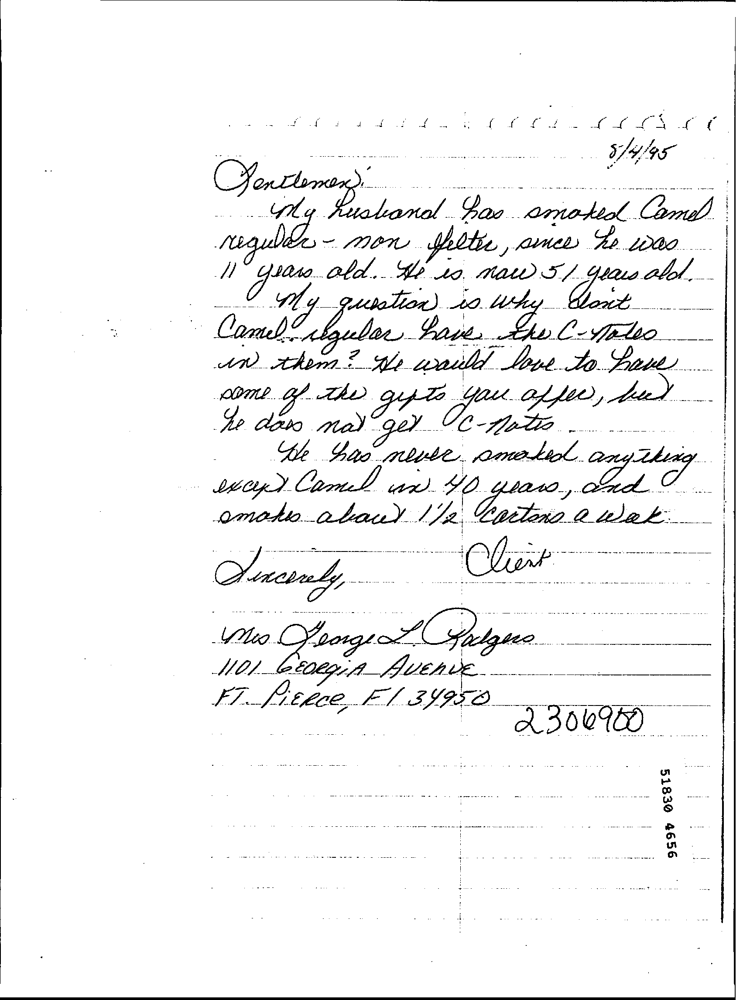 8/4/95
Gentlemen:
My husband has smoked Camel
regular - non filter, since he was
11 years old. He is now 51 years old.
My question is why don't
Camel regular have the C-Notes
in them? He would love to have
some of the gifts you offer, but
he does not get C-Notes.
He has never smoked anything
except Camel in 40 years, and
smokes about 1 1/2 cartons a week.
Client
Sincerely,
Mrs George L. Rodgers
1101 GEORGIA AVENUE
FT. PIERCE, Fl 34950
2306900
51830 4656